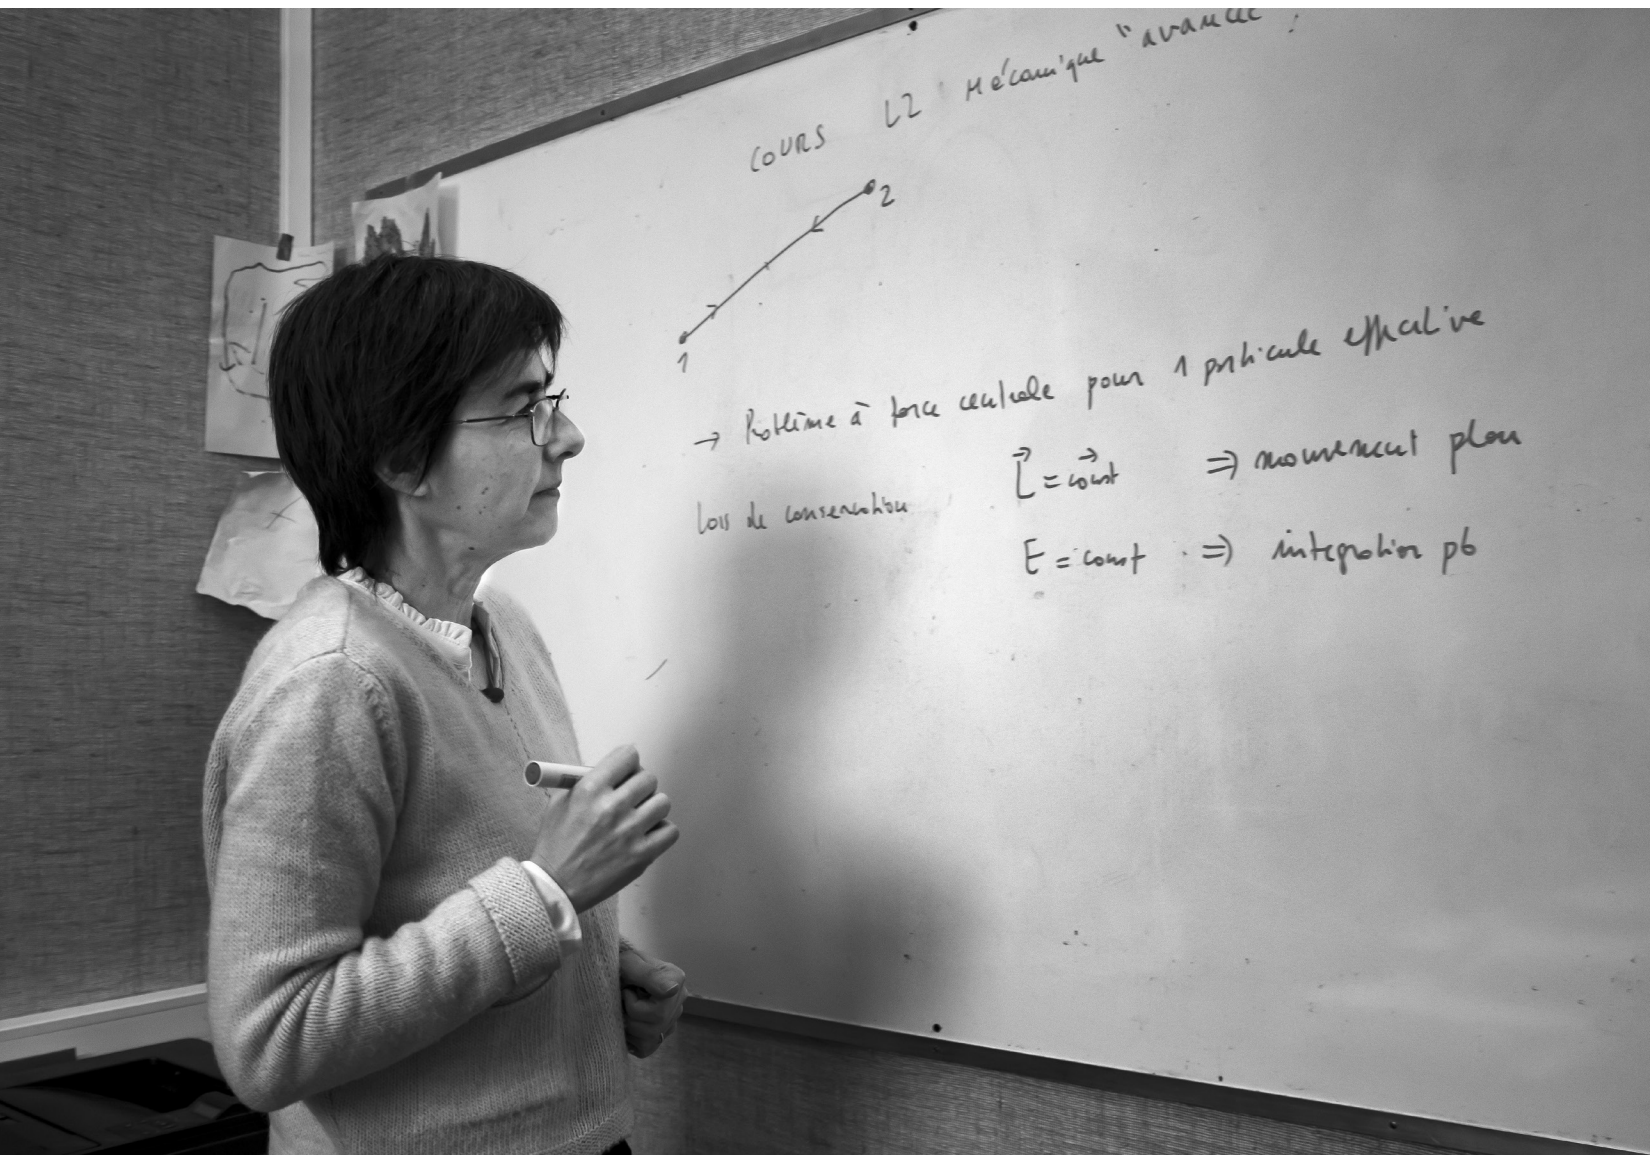 COURS L2 Mécanique "avancée"
2
1
→ Problème à force centrale pour 1 particule effective
Lois de conservation L⃗ = co⃗nst ⇒ mouvement plan
E = const ⇒ integration pb